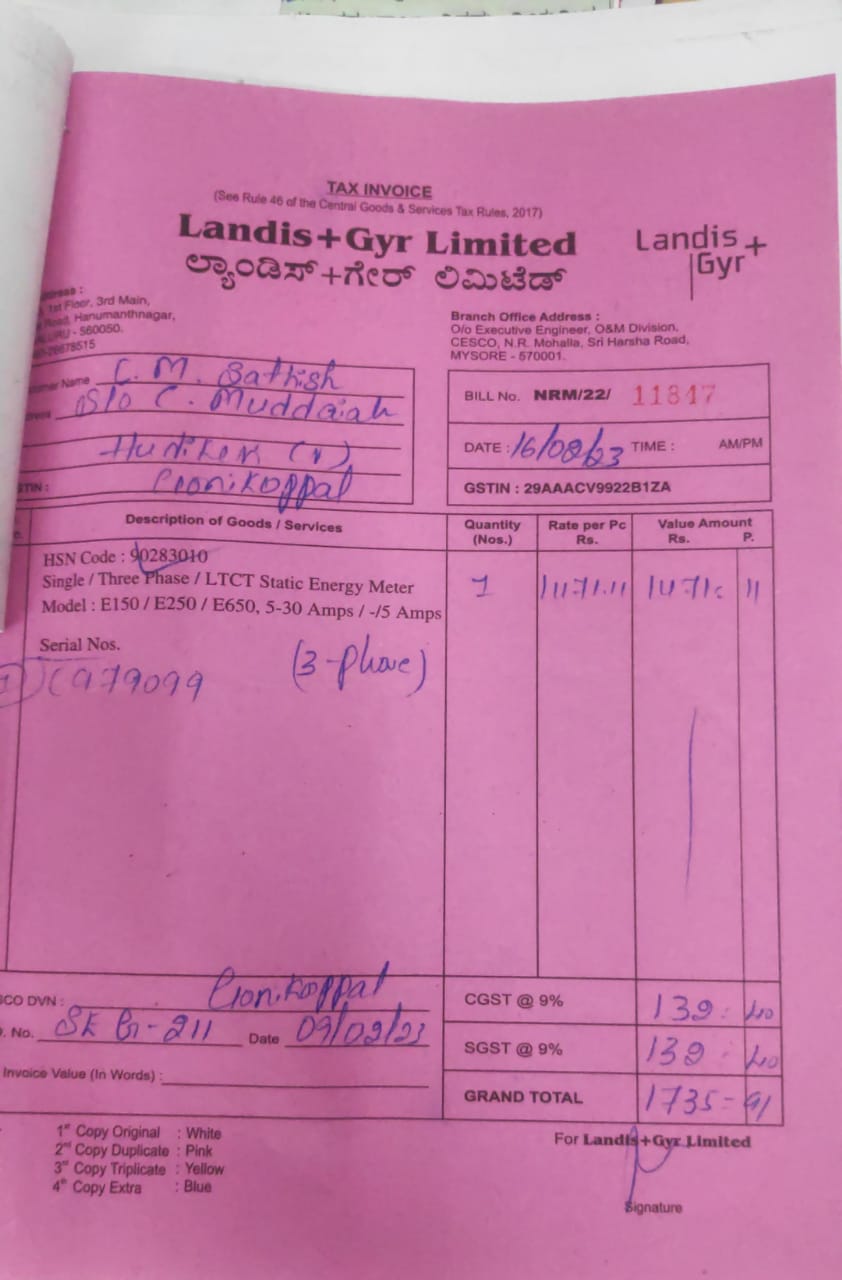 TAX INVOICE
(See Rule 46 of the Central Goods & Services Tax Rules, 2017)
Landis+Gyr Limited
ಲ್ಯಾಂಡಿಸ್+ಗೇರ್ ಲಿಮಿಟೆಡ್
Landis+
Gyr
1st Floor, 3rd Main,
Road, Hanumanthnagar,
- 560050.
Branch Office Address :
O/o Executive Engineer, O&M Division,
CESCO, N.R. Mohalla, Sri Harsha Road,
MYSORE - 570001.
Name C. M. Sathish
S/o C. Muddaiah
(V)
Gonikoppal
BILL No. NRM/22/ 11847
DATE : 16/08/23 TIME : AM/PM
GSTIN : 29AAACV9922B1ZA
Description of Goods / Services
Quantity (Nos.)
Rate per Pc Rs.
Value Amount Rs. P.
HSN Code : 90283010
Single / Three Phase / LTCT Static Energy Meter
Model : E150 / E250 / E650, 5-30 Amps / -/5 Amps
1
Serial Nos.
(3-phase)
979099
DVN : Gonikoppal
No. Date
Invoice Value (In Words) :
CGST @ 9% 139 40
SGST @ 9% 139 40
GRAND TOTAL 1735-91
1st Copy Original : White
2nd Copy Duplicate : Pink
3rd Copy Triplicate : Yellow
4th Copy Extra : Blue
For Landis+Gyr Limited
Signature